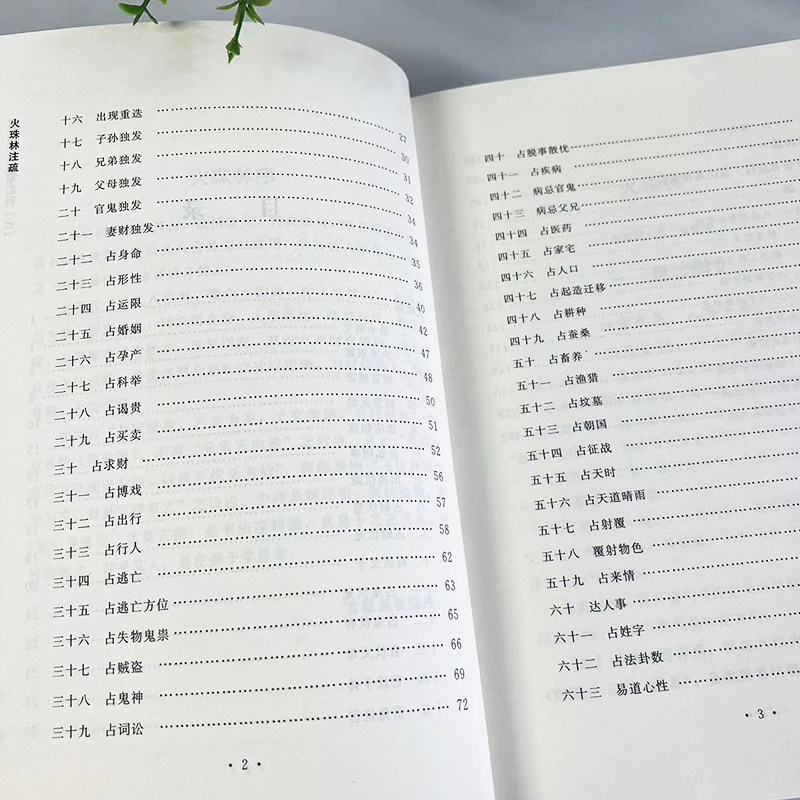 火珠林注疏
十六 出现重迭 …… 27
十七 子孙独发 …… 30
十八 兄弟独发 …… 31
十九 父母独发 …… 32
二十 官鬼独发 …… 34
二十一 妻财独发 …… 34
二十二 占身命 …… 35
二十三 占形性 …… 36
二十四 占运限 …… 40
二十五 占婚姻 …… 42
二十六 占孕产 …… 47
二十七 占科举 …… 48
二十八 占谒贵 …… 50
二十九 占买卖 …… 51
三十 占求财 …… 52
三十一 占博戏 …… 56
三十二 占出行 …… 57
三十三 占行人 …… 58
三十四 占逃亡 …… 62
三十五 占逃亡方位 …… 63
三十六 占失物鬼祟 …… 65
三十七 占贼盗 …… 66
三十八 占鬼神 …… 69
三十九 占词讼 …… 72
· 2 ·
四十 占脱事散忧 ……
四十一 占疾病 ……
四十二 病忌官鬼 ……
四十三 病忌父兄 ……
四十四 占医药 ……
四十五 占家宅 ……
四十六 占人口 ……
四十七 占起造迁移 ……
四十八 占耕种 ……
四十九 占蚕桑 ……
五十 占畜养 ……
五十一 占渔猎 ……
五十二 占坟墓 ……
五十三 占朝国 ……
五十四 占征战 ……
五十五 占天时 ……
五十六 占天道晴雨 ……
五十七 占射覆 ……
五十八 覆射物色 ……
五十九 占来情 ……
六十 达人事 ……
六十一 占姓字 ……
六十二 占法卦数 ……
六十三 易道心性 ……
· 3 ·